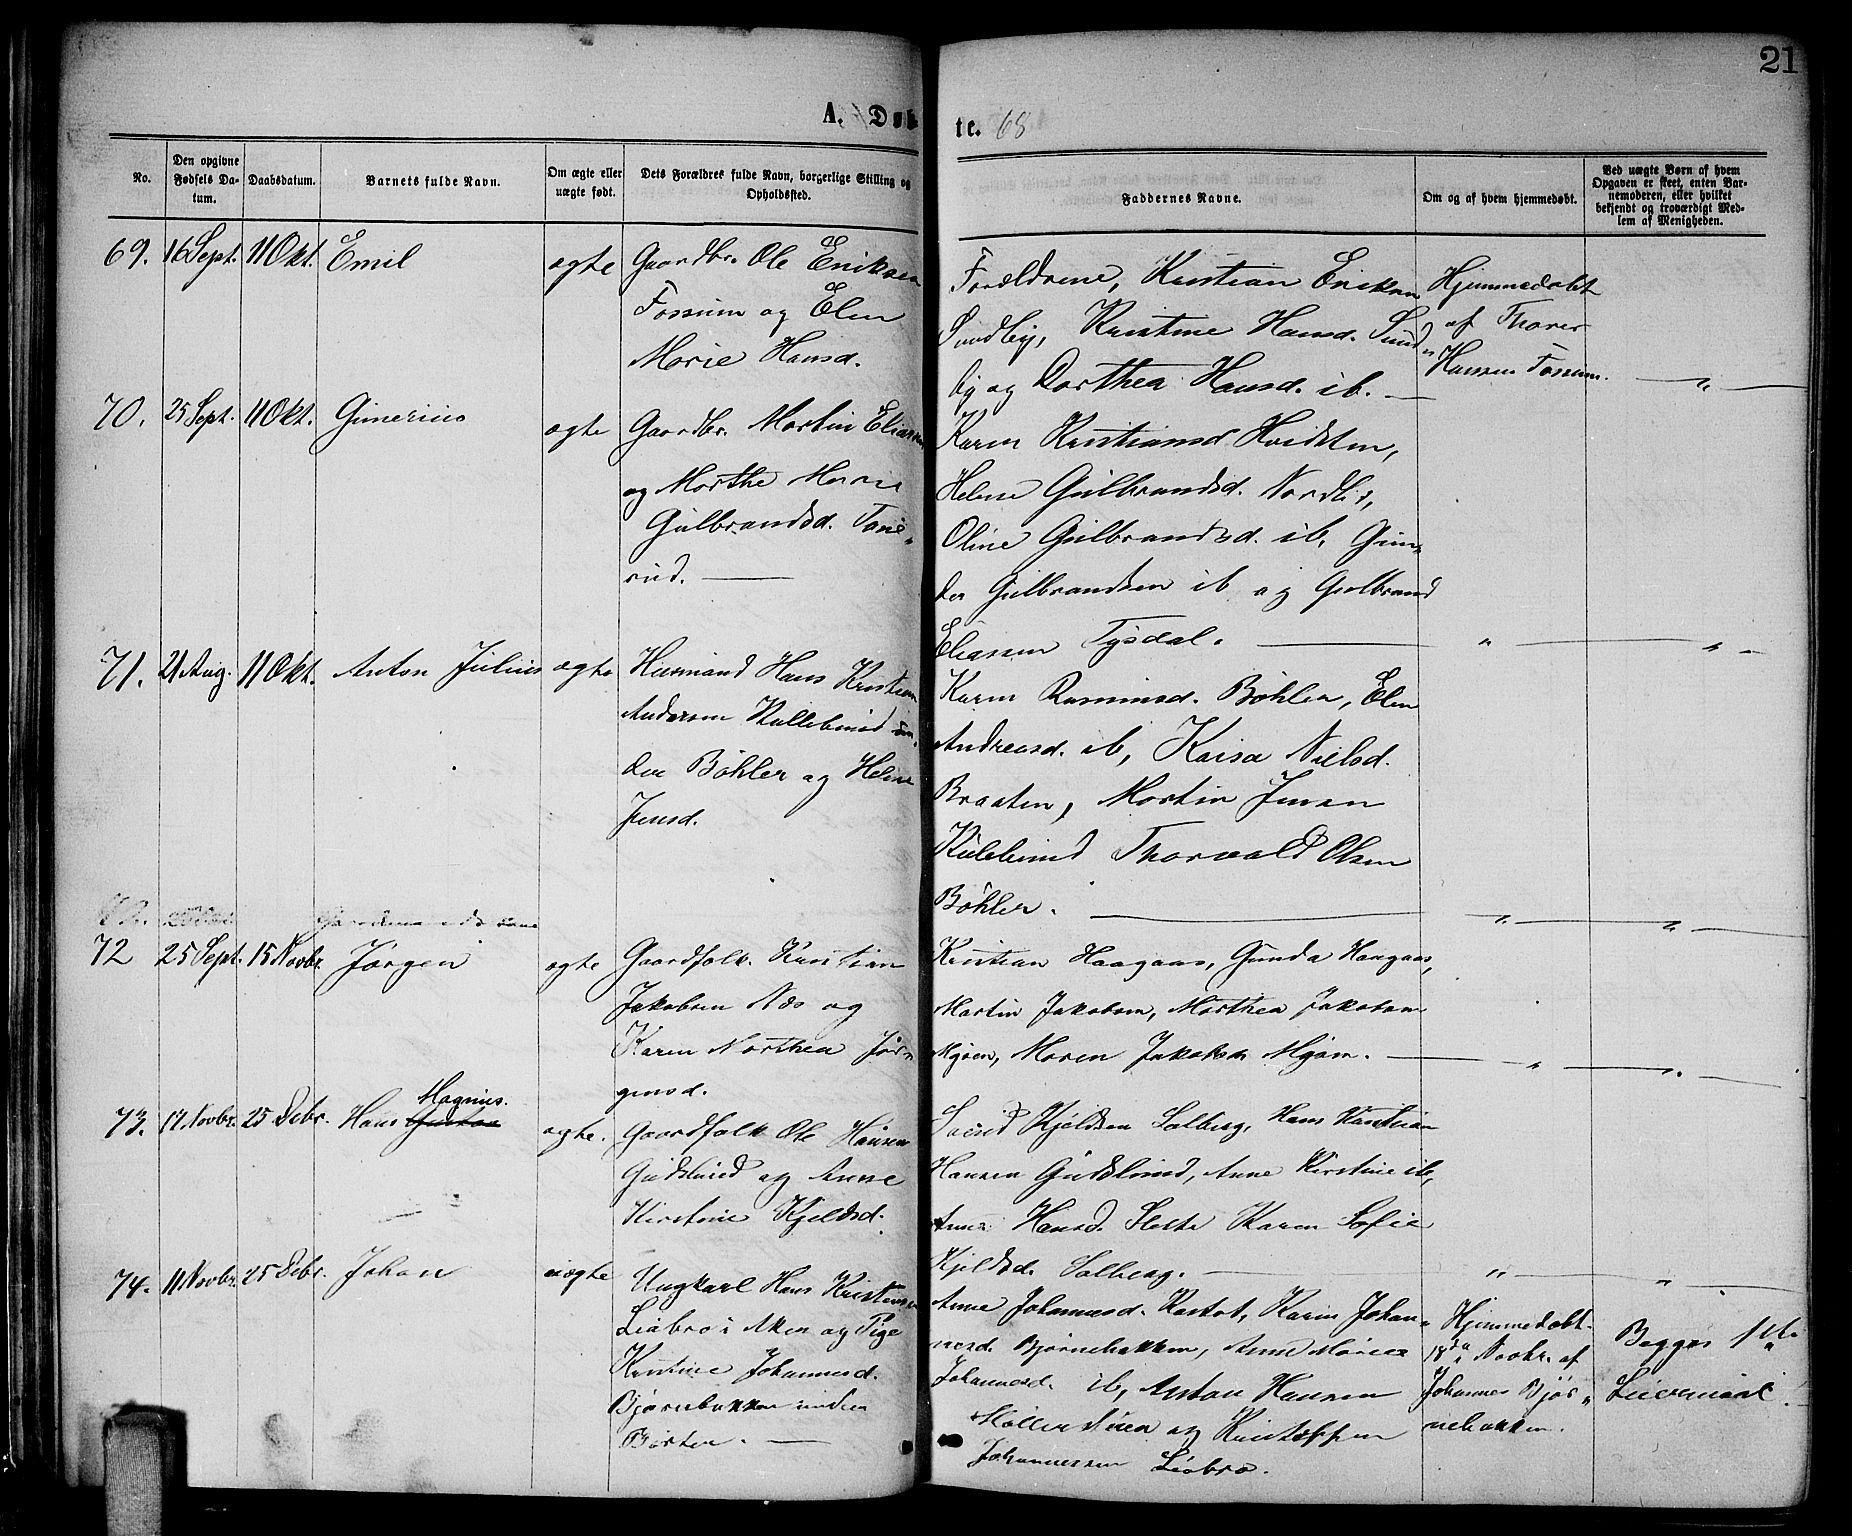 21
A. Døb
te. 68
No.
Den opgivne Fødsels Da-
tum.
Daabsdatum.
Barnets fulde Navn.
Om ægte eller
uægte født.
Dets Forældres fulde Navn, borgerlige Stilling og
Opholdssted.
Faddernes Navne.
Om og af hvem hjemmedøbt.
Ved uægte Børn af hvem
Opgaven er skeet, enten Bar-
nemoderen, eller hvilket
bekjendt og troværdigt Med-
lem af Menigheden.
69. 16 Sept. 11 Okt. Emil ægte Gaardbr. Ole Eriksen
Fossum og Elen
Marie Hansd.
Forældrene, Kristian Eriksen
Sundby, Kristine Hansd. Sund
by og Dorthea Hansd. ib.
Hjemmedøbt
af Thorer
Hansen Fossum.
"
70. 25 Sept. 11 Okt. Gunerius ægte Gaardbr. Martin Eliasen
og Marthe Marie
Gulbrandsd. Tane-
rud.
Karen Kristiansd. Hvidsten,
Helene Gulbrandsd. Nordli,
Oline Gulbrandsd. ib, Gun-
der Gulbrandsen ib og Gulbrand
Eliassen Tysdal.
" "
71. 21 Aug. 11 Okt. Anton Julius ægte Husmand Hans Kristian
Andersen Kullebund un-
der Bøhler og Helene
Jensd.
Karen Rasmusd. Bøhler, Elen
Andreasd. ib, Kaisa Nielsd.
Braaten, Martin Jensen
Kulebund Thorvald Olsen
Bøhler.
" "
72 25 Sept. 15 Novbr. Jørgen ægte Gaardfolk. Kristian
Jakobsen Næs og
Karen Marthea Jør-
gensd.
Kristian Haagaas, Gunda Haagaas,
Martin Jakobsen, Marthea Jakobsen
Mjøen, Maren Jakobsd. Mjøen.
" "
73. 17 Novbr. 25 Debr. Hans Magnus. ægte. Gaardfolk Ole Hansen
Gudslund og Anne
Kirstine Kjeldsd.
Kjeldsen Solberg, Hans Kristian
Hansen Gudslund, Anne Kirstine ib,
Anne Hansd. Karen Sofie
Kjeldsd. Solberg.
" "
74. 11 Novbr. 25 Debr. Johan uægte Ungkarl Hans Kristiansen
Liabro i Aken og Pige
Kristine Johannesd.
Bjørnebakken under
Børter.
Anne Johannesd. Karin Johan-
nesd. Bjørnebakken, Anne Marie
Johannesd. ib, Anton Hansen
og Kristoffen
Johannessen Liabro.
Hjemmedøbt
18de Novbr. af
Johannes Bjør-
nebakken.
Begges 1ste
Leiermaal.